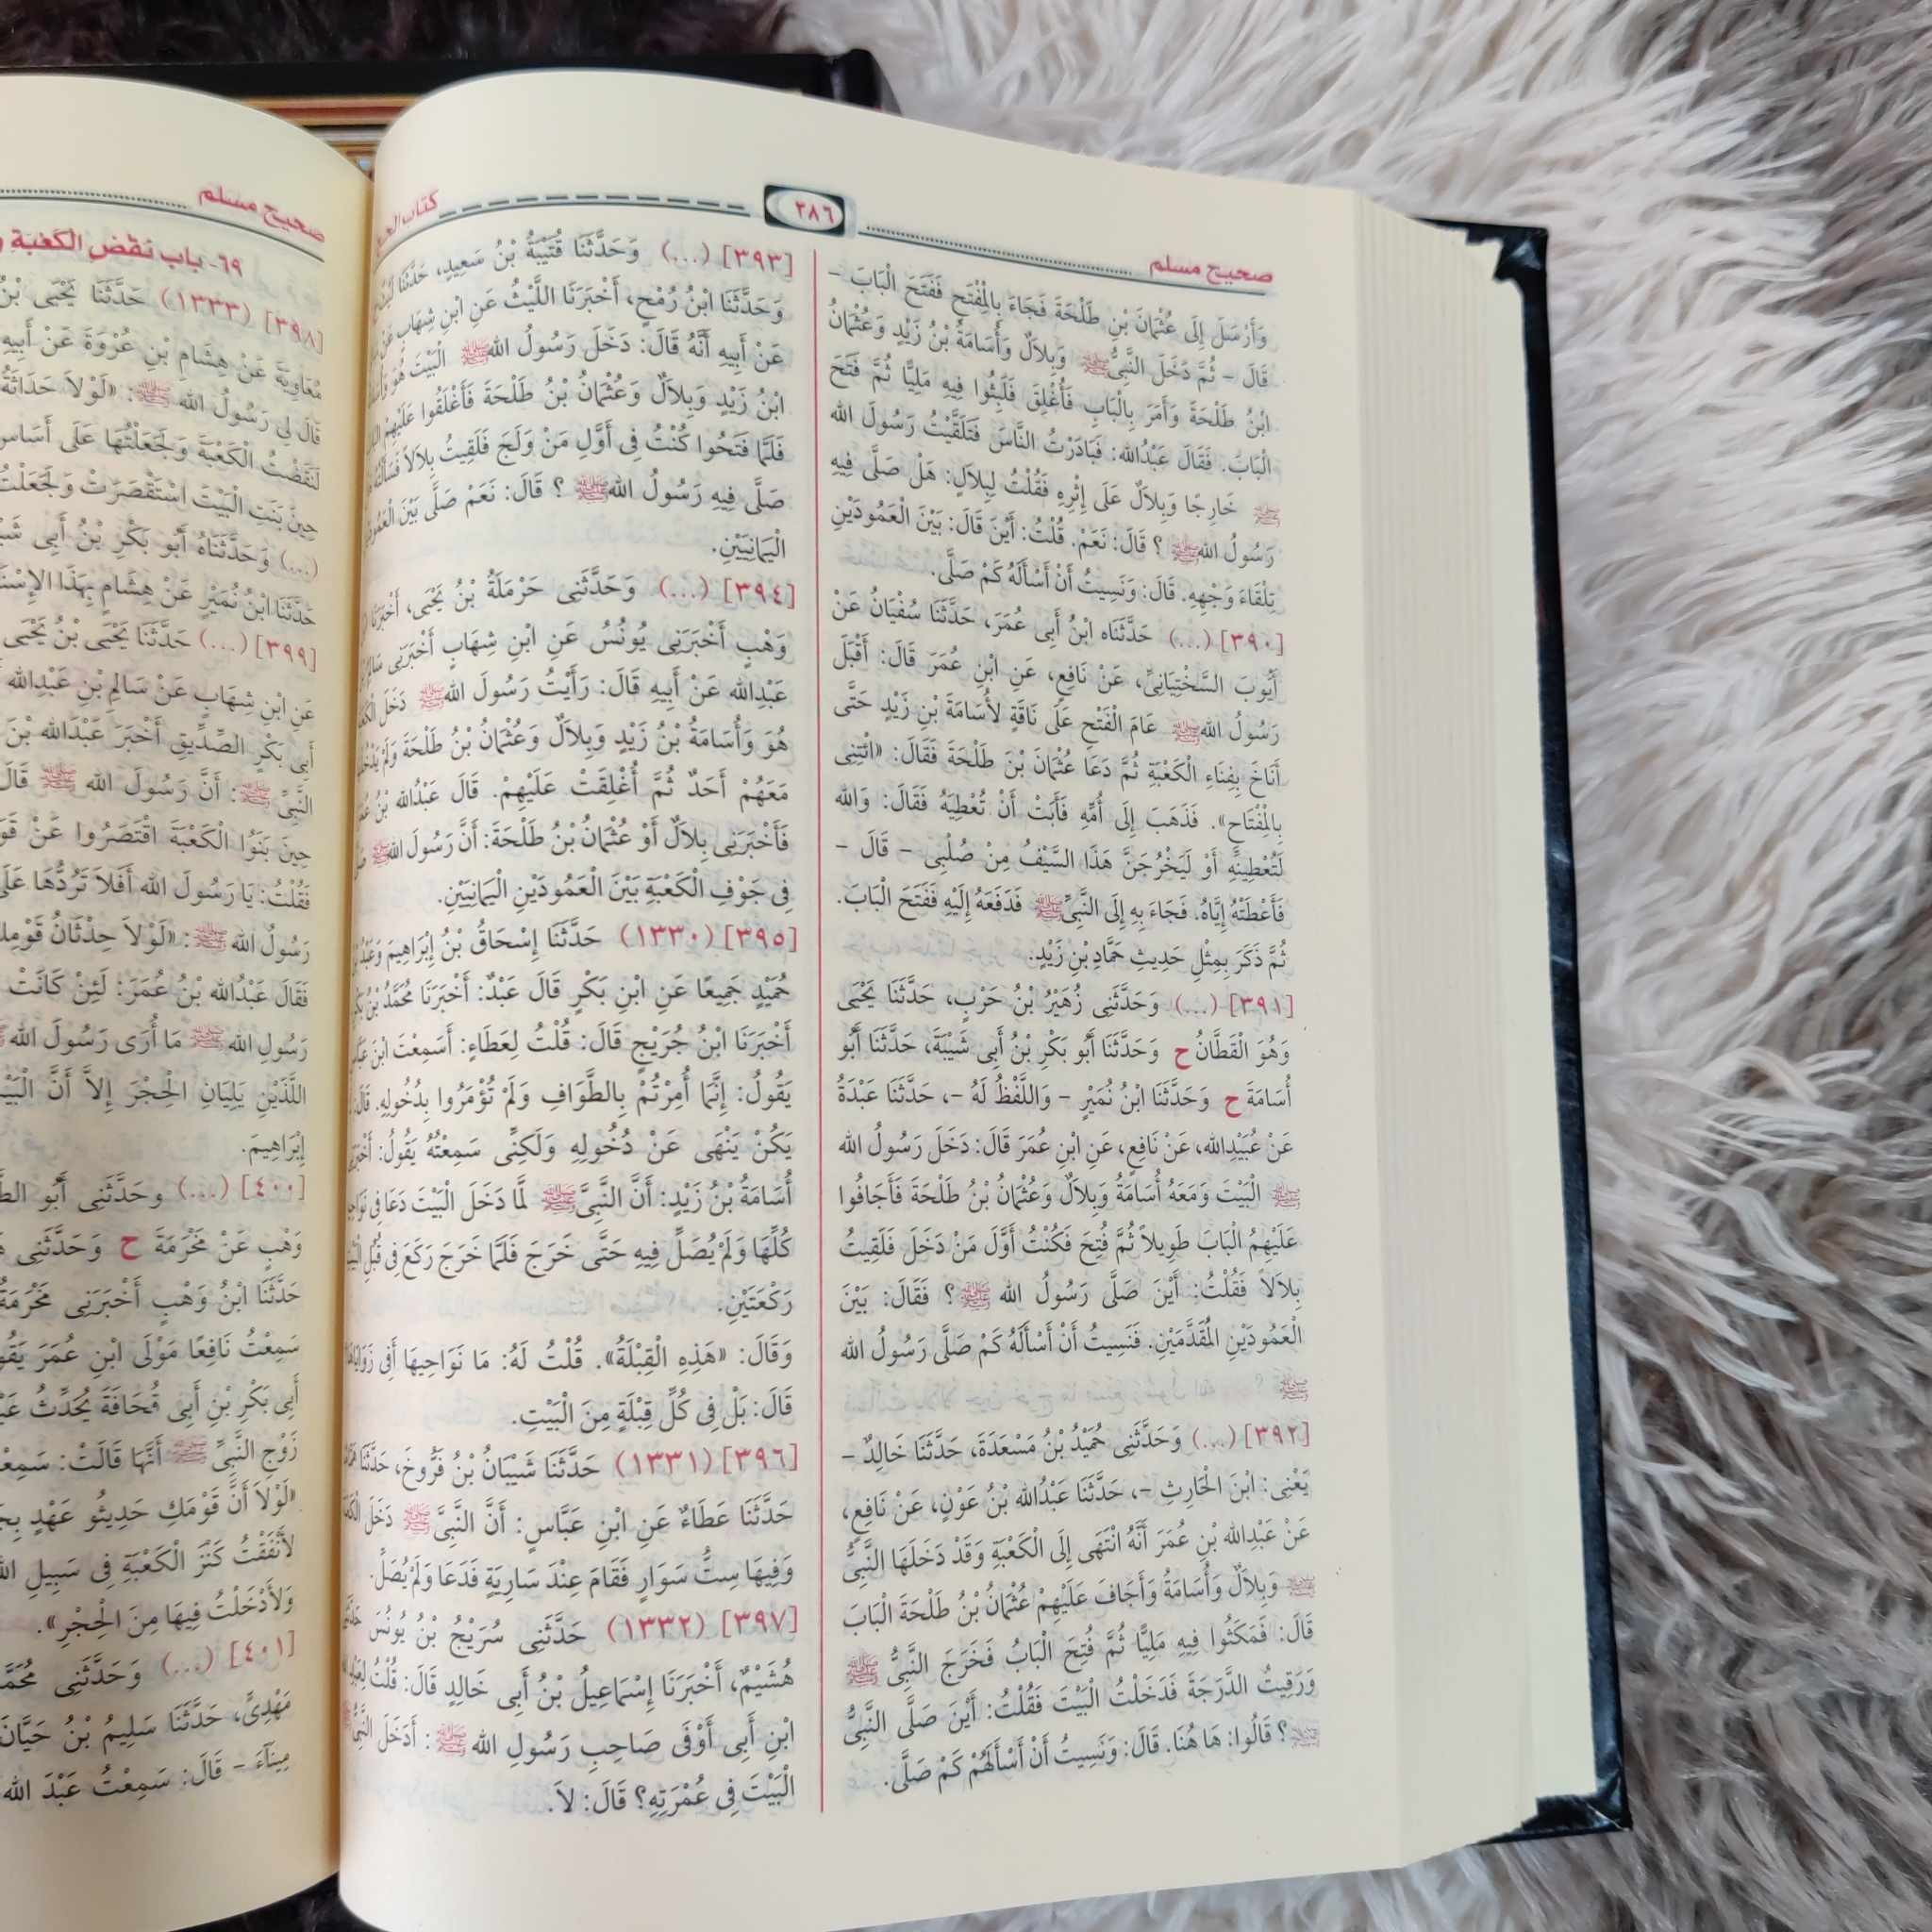 صحيح مسلم
٢٨٦
وَأَرْسَلَ إِلَى عُثْمَانَ بْنِ طَلْحَةَ فَجَاءَ بِالْمِفْتَحِ فَفَتَحَ الْبَابَ –
قَالَ – ثُمَّ دَخَلَ النَّبِىُّ ﷺ وَبِلاَلٌ وَأُسَامَةُ بْنُ زَيْدٍ وَعُثْمَانُ
ابْنُ طَلْحَةَ وَأَمَرَ بِالْبَابِ فَأُغْلِقَ فَلَبِثُوا فِيهِ مَلِيًّا ثُمَّ فَتَحَ
الْبَابَ. فَقَالَ عَبْدُالله: فَبَادَرْتُ النَّاسَ فَتَلَقَّيْتُ رَسُولَ الله
ﷺ خَارِجًا وَبِلاَلٌ عَلَى إِثْرِهِ فَقُلْتُ لِبِلاَلٍ: هَلْ صَلَّى فِيهِ
رَسُولُ الله ﷺ ؟ قَالَ: نَعَمْ. قُلْتُ: أَيْنَ قَالَ: بَيْنَ الْعَمُودَيْنِ
تِلْقَاءَ وَجْهِهِ. قَالَ: وَنَسِيتُ أَنْ أَسْأَلَهُ كَمْ صَلَّى.
[٣٩٠] (...) حَدَّثَنَاه ابْنُ أَبِى عُمَرَ، حَدَّثَنَا سُفْيَانُ عَنْ
أَيُّوبَ السَّخْتِيَانِىِّ، عَنْ نَافِعٍ، عَنِ ابْنِ عُمَرَ قَالَ: أَقْبَلَ
رَسُولُ الله ﷺ عَامَ الْفَتْحِ عَلَى نَاقَةٍ لأُسَامَةَ بْنِ زَيْدٍ حَتَّى
أَنَاخَ بِفِنَاءِ الْكَعْبَةِ ثُمَّ دَعَا عُثْمَانَ بْنَ طَلْحَةَ فَقَالَ: «ائْتِنِى
بِالْمِفْتَاحِ». فَذَهَبَ إِلَى أُمِّهِ فَأَبَتْ أَنْ تُعْطِيَهُ فَقَالَ: وَالله
لَتُعْطِينِهِ أَوْ لَيَخْرُجَنَّ هَذَا السَّيْفُ مِنْ صُلْبِى – قَالَ –
فَأَعْطَتْهُ إِيَّاهُ. فَجَاءَ بِهِ إِلَى النَّبِىِّ ﷺ فَدَفَعَهُ إِلَيْهِ فَفَتَحَ الْبَابَ.
ثُمَّ ذَكَرَ بِمِثْلِ حَدِيثِ حَمَّادِ بْنِ زَيْدٍ.
[٣٩١] (...) وَحَدَّثَنِى زُهَيْرُ بْنُ حَرْبٍ، حَدَّثَنَا يَحْيَى
وَهُوَ الْقَطَّانُ ح وَحَدَّثَنَا أَبُو بَكْرِ بْنُ أَبِى شَيْبَةَ، حَدَّثَنَا أَبُو
أُسَامَةَ ح وَحَدَّثَنَا ابْنُ نُمَيْرٍ – وَاللَّفْظُ لَهُ –، حَدَّثَنَا عَبْدَةُ
عَنْ عُبَيْدِالله، عَنْ نَافِعٍ، عَنِ ابْنِ عُمَرَ قَالَ: دَخَلَ رَسُولُ الله
ﷺ الْبَيْتَ وَمَعَهُ أُسَامَةُ وَبِلاَلٌ وَعُثْمَانُ بْنُ طَلْحَةَ فَأَجَافُوا
عَلَيْهِمُ الْبَابَ طَوِيلاً ثُمَّ فُتِحَ فَكُنْتُ أَوَّلَ مَنْ دَخَلَ فَلَقِيتُ
بِلاَلاً فَقُلْتُ: أَيْنَ صَلَّى رَسُولُ الله ﷺ ؟ فَقَالَ: بَيْنَ
الْعَمُودَيْنِ الْمُقَدَّمَيْنِ. فَنَسِيتُ أَنْ أَسْأَلَهُ كَمْ صَلَّى رَسُولُ الله
ﷺ
[٣٩٢] (...) وَحَدَّثَنِى حُمَيْدُ بْنُ مَسْعَدَةَ، حَدَّثَنَا خَالِدٌ –
يَعْنِى: ابْنَ الْحَارِثِ –، حَدَّثَنَا عَبْدُالله بْنُ عَوْنٍ، عَنْ نَافِعٍ،
عَنْ عَبْدِالله بْنِ عُمَرَ أَنَّهُ انْتَهَى إِلَى الْكَعْبَةِ وَقَدْ دَخَلَهَا النَّبِىُّ
ﷺ وَبِلاَلٌ وَأُسَامَةُ وَأَجَافَ عَلَيْهِمْ عُثْمَانُ بْنُ طَلْحَةَ الْبَابَ
قَالَ: فَمَكَثُوا فِيهِ مَلِيًّا ثُمَّ فُتِحَ الْبَابُ فَخَرَجَ النَّبِىُّ ﷺ
وَرَقِيتُ الدَّرَجَةَ فَدَخَلْتُ الْبَيْتَ فَقُلْتُ: أَيْنَ صَلَّى النَّبِىُّ
ﷺ ؟ قَالُوا: هَا هُنَا. قَالَ: وَنَسِيتُ أَنْ أَسْأَلَهُمْ كَمْ صَلَّى.
كتاب
[٣٩٣] (...) وَحَدَّثَنَا قُتَيْبَةُ بْنُ سَعِيدٍ، حَدَّثَنَا
وَحَدَّثَنَا ابْنُ رُمْحٍ، أَخْبَرَنَا اللَّيْثُ عَنِ ابْنِ شِهَابٍ عَنْ
عَنْ أَبِيهِ أَنَّهُ قَالَ: دَخَلَ رَسُولُ الله ﷺ الْبَيْتَ هُوَ
ابْنُ زَيْدٍ وَبِلاَلٌ وَعُثْمَانُ بْنُ طَلْحَةَ فَأَغْلَقُوا عَلَيْهِمُ
فَلَمَّا فَتَحُوا كُنْتُ فِى أَوَّلِ مَنْ وَلَجَ فَلَقِيتُ بِلاَلاً فَسَأَلْتُهُ
صَلَّى فِيهِ رَسُولُ الله ﷺ ؟ قَالَ: نَعَمْ صَلَّى بَيْنَ الْعَمُودَيْنِ
الْيَمَانِيَيْنِ.
[٣٩٤] (...) وَحَدَّثَنِى حَرْمَلَةُ بْنُ يَحْيَى، أَخْبَرَنَا
وَهْبٍ أَخْبَرَنِى يُونُسُ عَنِ ابْنِ شِهَابٍ أَخْبَرَنِى
عَبْدِالله عَنْ أَبِيهِ قَالَ: رَأَيْتُ رَسُولَ الله ﷺ دَخَلَ
هُوَ وَأُسَامَةُ بْنُ زَيْدٍ وَبِلاَلٌ وَعُثْمَانُ بْنُ طَلْحَةَ وَلَمْ
مَعَهُمْ أَحَدٌ ثُمَّ أُغْلِقَتْ عَلَيْهِمْ. قَالَ عَبْدُالله بْنُ
فَأَخْبَرَنِى بِلاَلٌ أَوْ عُثْمَانُ بْنُ طَلْحَةَ: أَنَّ رَسُولَ الله ﷺ
فِى جَوْفِ الْكَعْبَةِ بَيْنَ الْعَمُودَيْنِ الْيَمَانِيَيْنِ.
[٣٩٥] (١٣٣٠) حَدَّثَنَا إِسْحَاقُ بْنُ إِبْرَاهِيمَ وَعَبْدُ
حُمَيْدٍ جَمِيعًا عَنِ ابْنِ بَكْرٍ قَالَ عَبْدٌ: أَخْبَرَنَا مُحَمَّدُ بْنُ
أَخْبَرَنَا ابْنُ جُرَيْجٍ قَالَ: قُلْتُ لِعَطَاءٍ: أَسَمِعْتَ ابْنَ
يَقُولُ: إِنَّمَا أُمِرْتُمْ بِالطَّوَافِ وَلَمْ تُؤْمَرُوا بِدُخُولِهِ. قَالَ:
يَكُنْ يَنْهَى عَنْ دُخُولِهِ وَلَكِنِّى سَمِعْتُهُ يَقُولُ:
أُسَامَةُ بْنُ زَيْدٍ: أَنَّ النَّبِىَّ ﷺ لَمَّا دَخَلَ الْبَيْتَ دَعَا فِى
كُلِّهَا وَلَمْ يُصَلِّ فِيهِ حَتَّى خَرَجَ فَلَمَّا خَرَجَ رَكَعَ فِى قُبُلِ
رَكْعَتَيْنِ.
وَقَالَ: «هَذِهِ الْقِبْلَةُ». قُلْتُ لَهُ: مَا نَوَاحِيهَا أَفِى
قَالَ: بَلْ فِى كُلِّ قِبْلَةٍ مِنَ الْبَيْتِ.
[٣٩٦] (١٣٣١) حَدَّثَنَا شَيْبَانُ بْنُ فَرُّوخَ، حَدَّثَنَا
حَدَّثَنَا عَطَاءٌ عَنِ ابْنِ عَبَّاسٍ: أَنَّ النَّبِىَّ ﷺ دَخَلَ
وَفِيهَا سِتُّ سَوَارٍ فَقَامَ عِنْدَ سَارِيَةٍ فَدَعَا وَلَمْ يُصَلِّ.
[٣٩٧] (١٣٣٢) حَدَّثَنِى سُرَيْجُ بْنُ يُونُسَ
هُشَيْمٌ، أَخْبَرَنَا إِسْمَاعِيلُ بْنُ أَبِى خَالِدٍ قَالَ: قُلْتُ
ابْنِ أَبِى أَوْفَى صَاحِبِ رَسُولِ الله ﷺ : أَدَخَلَ
الْبَيْتَ فِى عُمْرَتِهِ؟ قَالَ: لاَ.
صحيح مسلم
٦٩- باب نقض الكعبة
[٣٩٨] (١٣٣٣) حَدَّثَنَا يَحْيَى بْنُ
مُعَاوِيَةَ عَنْ هِشَامِ بْنِ عُرْوَةَ عَنْ أَبِيهِ
قَالَ لِى رَسُولُ الله ﷺ : «لَوْلاَ حَدَاثَةُ
لَنَقَضْتُ الْكَعْبَةَ وَلَجَعَلْتُهَا عَلَى أَسَاسِ
حِينَ بَنَتِ الْبَيْتَ اسْتَقْصَرَتْ وَلَجَعَلْتُ
(...) وَحَدَّثَنَاهُ أَبُو بَكْرِ بْنُ أَبِى
حَدَّثَنَا ابْنُ نُمَيْرٍ عَنْ هِشَامٍ بِهَذَا
[٣٩٩] (...) حَدَّثَنَا يَحْيَى بْنُ يَحْيَى
عَنِ ابْنِ شِهَابٍ عَنْ سَالِمِ بْنِ عَبْدِالله
أَبِى بَكْرٍ الصِّدِّيقِ أَخْبَرَ عَبْدَالله بْنَ
النَّبِىِّ ﷺ : أَنَّ رَسُولَ الله ﷺ قَالَ
حِينَ بَنَوُا الْكَعْبَةَ اقْتَصَرُوا عَنْ
فَقُلْتُ: يَا رَسُولَ الله أَفَلاَ تَرُدُّهَا
رَسُولُ الله ﷺ : «لَوْلاَ حِدْثَانُ
فَقَالَ عَبْدُالله بْنُ عُمَرَ: لَئِنْ كَانَتْ
رَسُولِ الله ﷺ مَا أُرَى رَسُولَ الله
اللَّذَيْنِ يَلِيَانِ الْحِجْرَ إِلاَّ أَنَّ
إِبْرَاهِيمَ.
[٤٠٠] (...) وحَدَّثَنِى أَبُو
وَهْبٍ عَنْ مَخْرَمَةَ ح وَحَدَّثَنِى
حَدَّثَنَا ابْنُ وَهْبٍ أَخْبَرَنِى مَخْرَمَةُ
سَمِعْتُ نَافِعًا مَوْلَى ابْنِ عُمَرَ
أَبِى بَكْرِ بْنِ أَبِى قُحَافَةَ يُحَدِّثُ
زَوْجِ النَّبِىِّ ﷺ أَنَّهَا قَالَتْ:
«لَوْلاَ أَنَّ قَوْمَكِ حَدِيثُو عَهْدٍ
لأَنْفَقْتُ كَنْزَ الْكَعْبَةِ فِى سَبِيلِ
وَلأَدْخَلْتُ فِيهَا مِنَ الْحِجْرِ».
[٤٠١] (...) وَحَدَّثَنِى
مَهْدِىٍّ، حَدَّثَنَا سَلِيمُ بْنُ حَيَّانَ
مِينَاءَ – قَالَ: سَمِعْتُ عَبْدَ الله